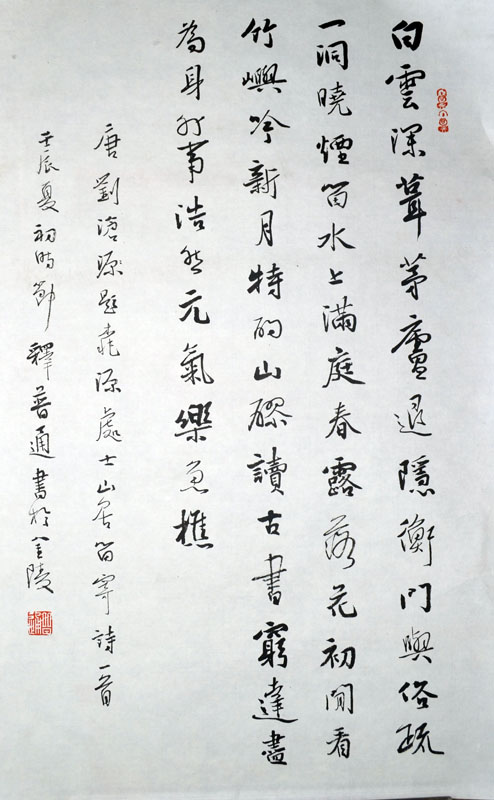 白雲深葺茅廬退隱衡門與俗疏
一洞曉煙留水上滿庭春露落花初閒看
竹嶼吟新月特酌山醪讀古書窮達盡
為身外事浩然元氣樂魚樵
唐劉滄源題桃源處士山居留寄詩一首
壬辰夏初時節釋普通書於金陵